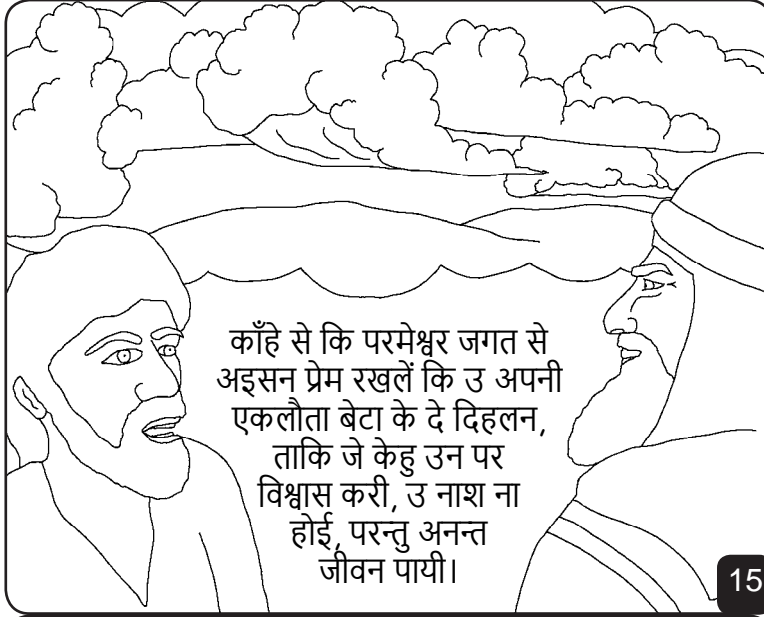 काँहे से कि परमेश्वर जगत से
अइसन प्रेम रखलें कि उ अपनी
एकलौता बेटा के दे दिहलन,
ताकि जे केहु उन पर
विश्वास करी, उ नाश ना
होई, परन्तु अनन्त
जीवन पायी।
15